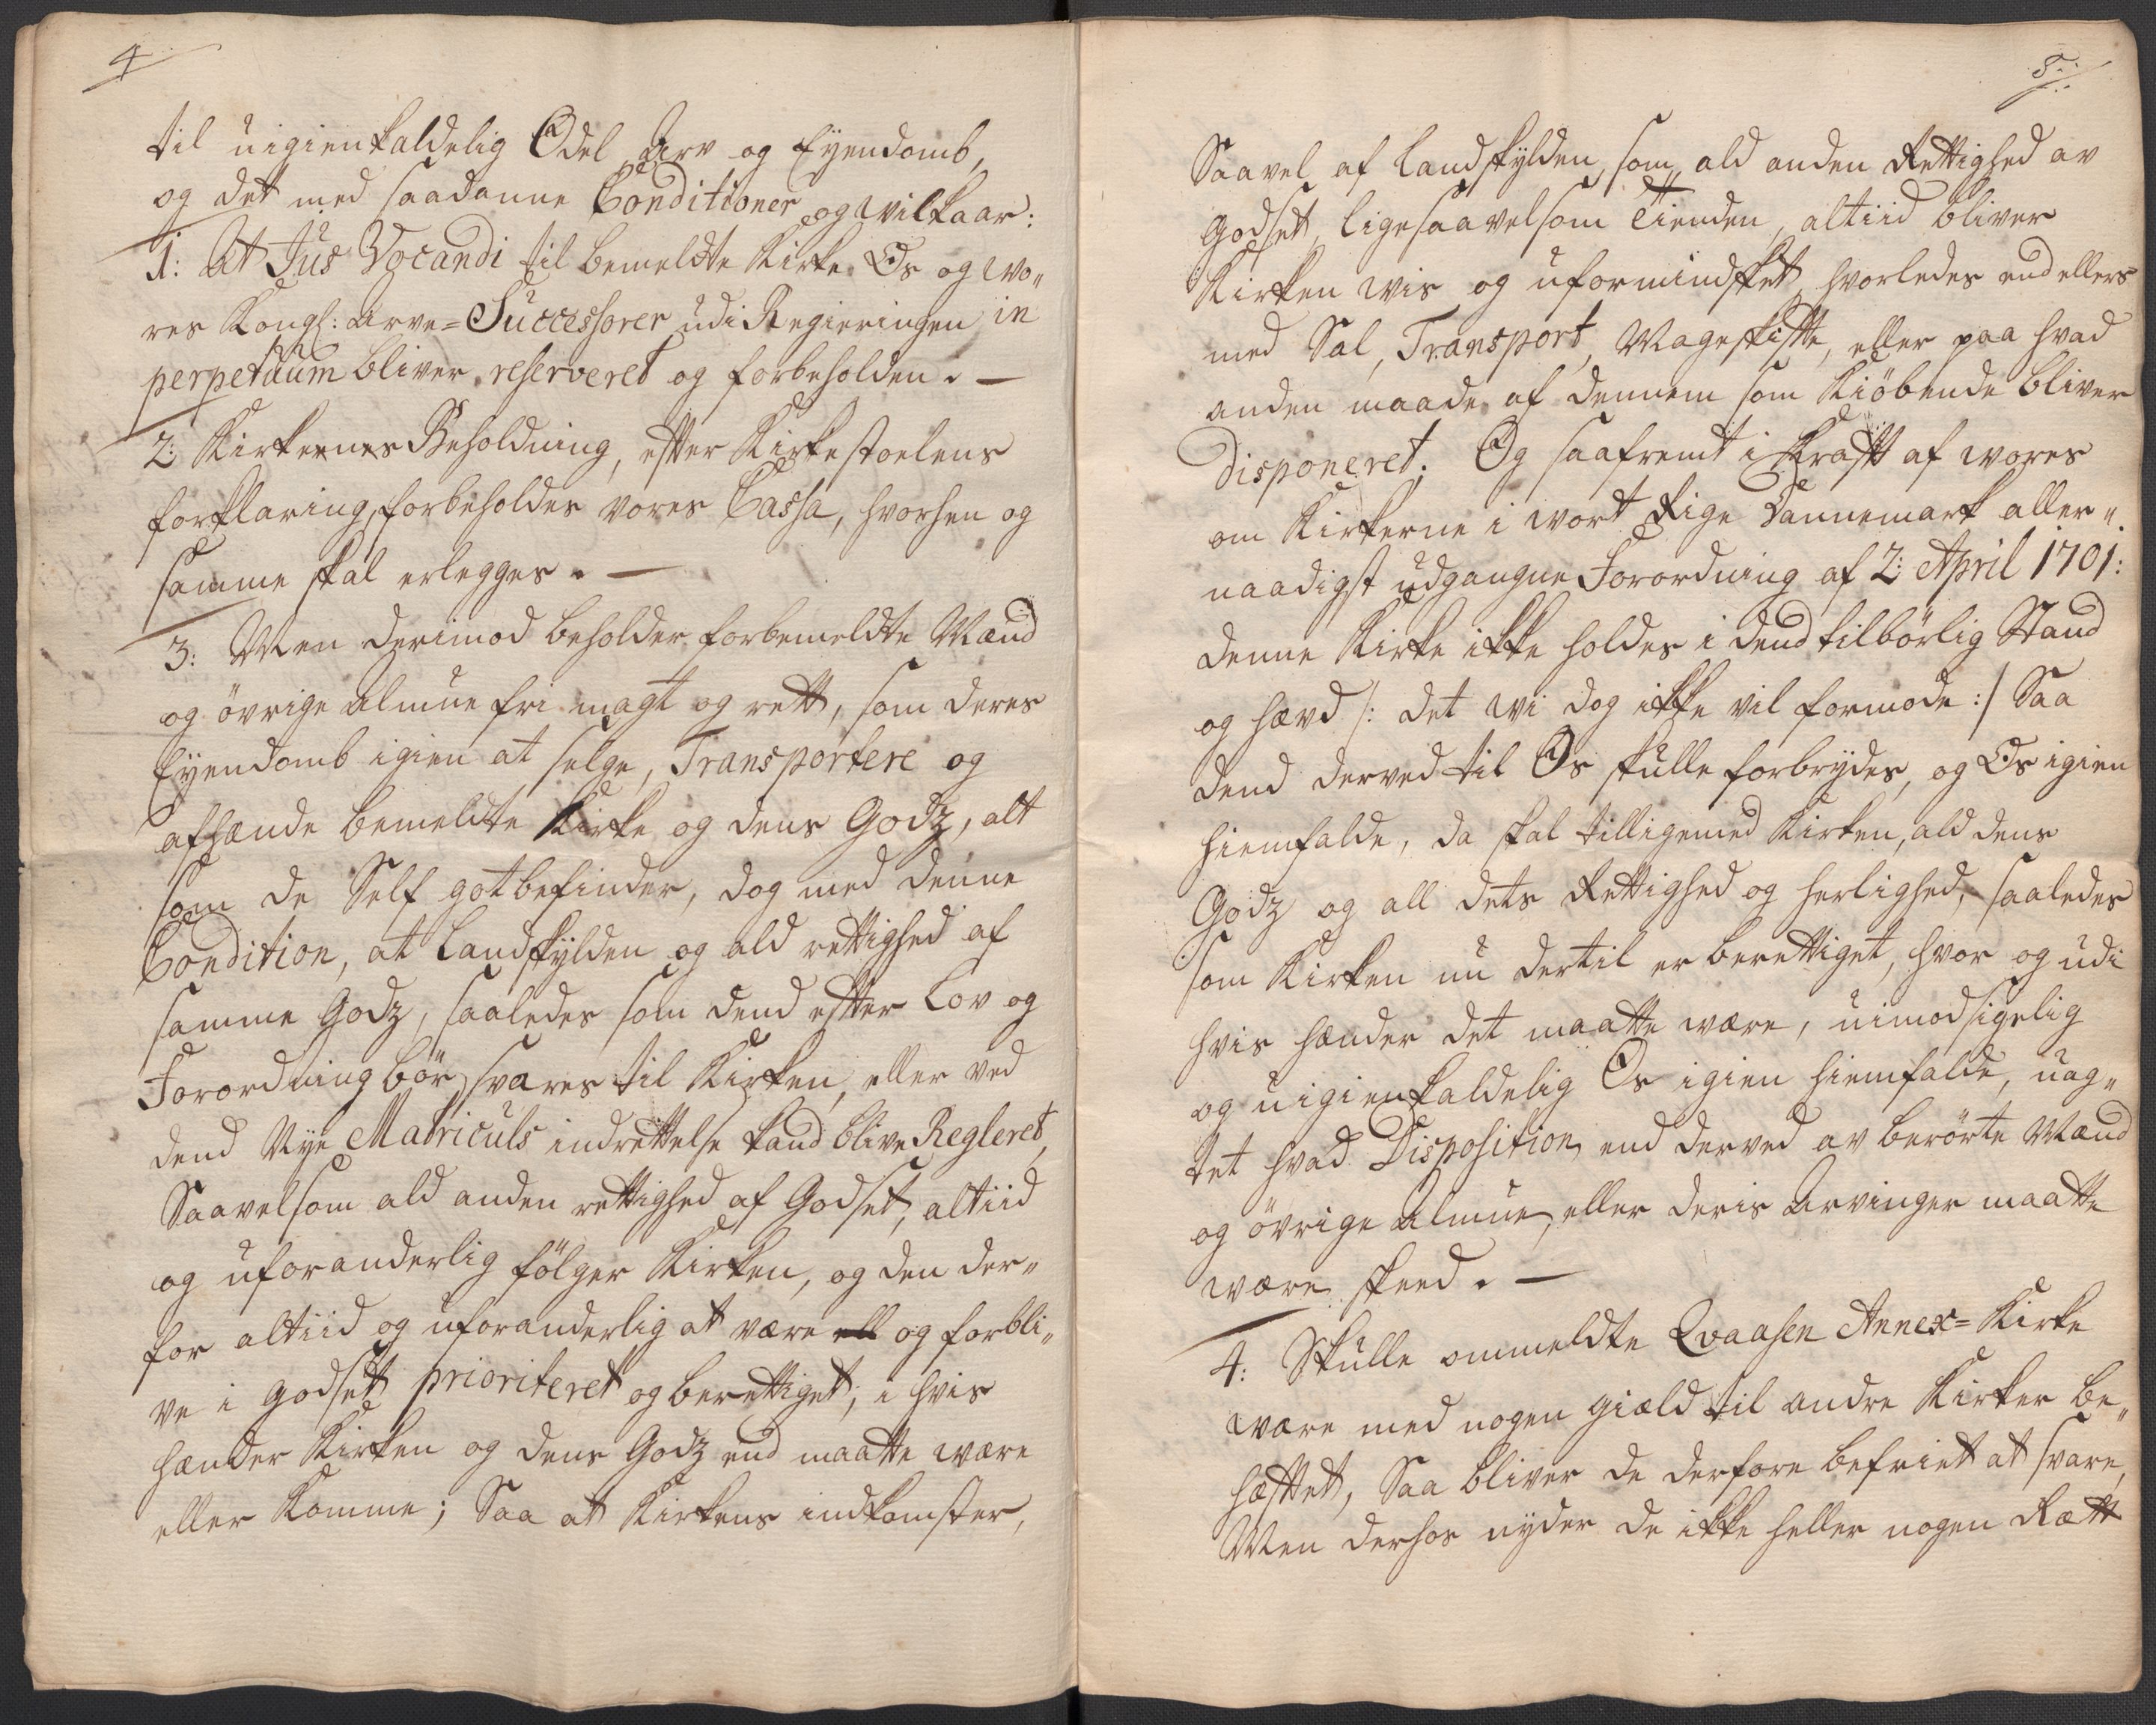 4
til uigienkaldelig Odel Arv og Eyendomb,
og det med saadanne Conditioner og wilkaar:
1: At Jus Vocandi til bemeldte Kirke Os og wo„
res Kongl: Arve=Successorer udi Regieringen in
perpetuum bliver reserveret og forbeholden. —
2: Kirkernes Beholdning, efter Kirkestoelens
forklaring, forbeholdes vores Cassa, hvorhen og
samme skal erlegges. —
3: Men derimod beholder forbemeldte Mænd
og övrige Almue fri magt og rett, som deres
Eyendomb igien at selge, Transportere og
afhænde bemeldte Kirke og dens Godz, alt
som de Self gotbefinder, dog med denne
Condition, at Landskylden og ald rettighed af
samme Godz, saaledes som dend efter Lov og
Forordning bör svares til Kirken, eller ved
dend Nye Matriculs indrettelse kand blive Regleret,
Saavelsom ald anden rettighed af Godset, altiid
og uforanderlig fölger Kirken, og den der„
for altiid og uforanderlig at være ell og forbli„
ve i Godset prioriteret og berettiget, i hvis
hænder Kirken og dens Godz end maatte være
eller komme; Saa at Kirkens indkomster,
5:
Saavel af Landskylden, som ald anden Rettighed av
Godset, ligesaavelsom Tienden, altiid bliver
Kirken wis og uformindsket, hvorledes end ellers
med Sal, Transport, Mageskifte, eller paa hvad
anden maade af dennem som Kiöbende bliver
disponeret. Og saafremt i Kraft af wores
om Kirkerne i wort Rige Dannemark aller„
naadigst udgangne Forordning af 2: April 1701:
denne Kirke ikke holdes i dend tilbörlig Stand
og hævd /: det wi dog ikke vil formode :/ Saa
dend derved til Os skulle forbrydes, og Os igien
hiemfalde, da skal tilligemed Kirken, ald dens
Godz og all dets Rettighed og herlighed, saaledes
som Kirken nu dertil er berettiget, hvor og udi
hvis hænder det maatte være, uimodsigelig
og uigienkaldelig Os igien hiemfalde, uag„
tet hvad Disposition end derved av berörte Mænd
og övrige Almue, eller deris Arvinger maatte
være skeed. —
4: Skulle ommeldte Qvaasen Annex=Kirke
være med nogen giæld til andre Kirker be„
hæftet, Saa bliver de derfore befriet at svare,
Men derhos nyder de ikke heller nogen Rætt